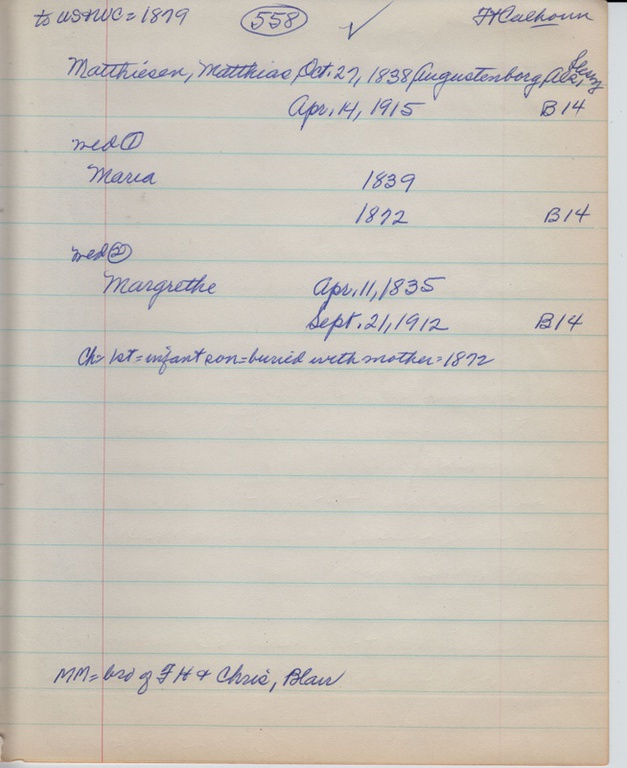 to US+WC = 1879 558 ✓ Ft Calhoun
Matthiesen, Matthias, Oct. 27, 1838, Augustenborg, Als,
Apr. 14, 1915 B14
med ①
Maria 1839
1872 B14
med ②
Margrethe Apr. 11, 1835
Sept. 21, 1912 B14
Ch = 1st = infant son = buried with mother = 1872
MM = bro of F H & Chris, Blair